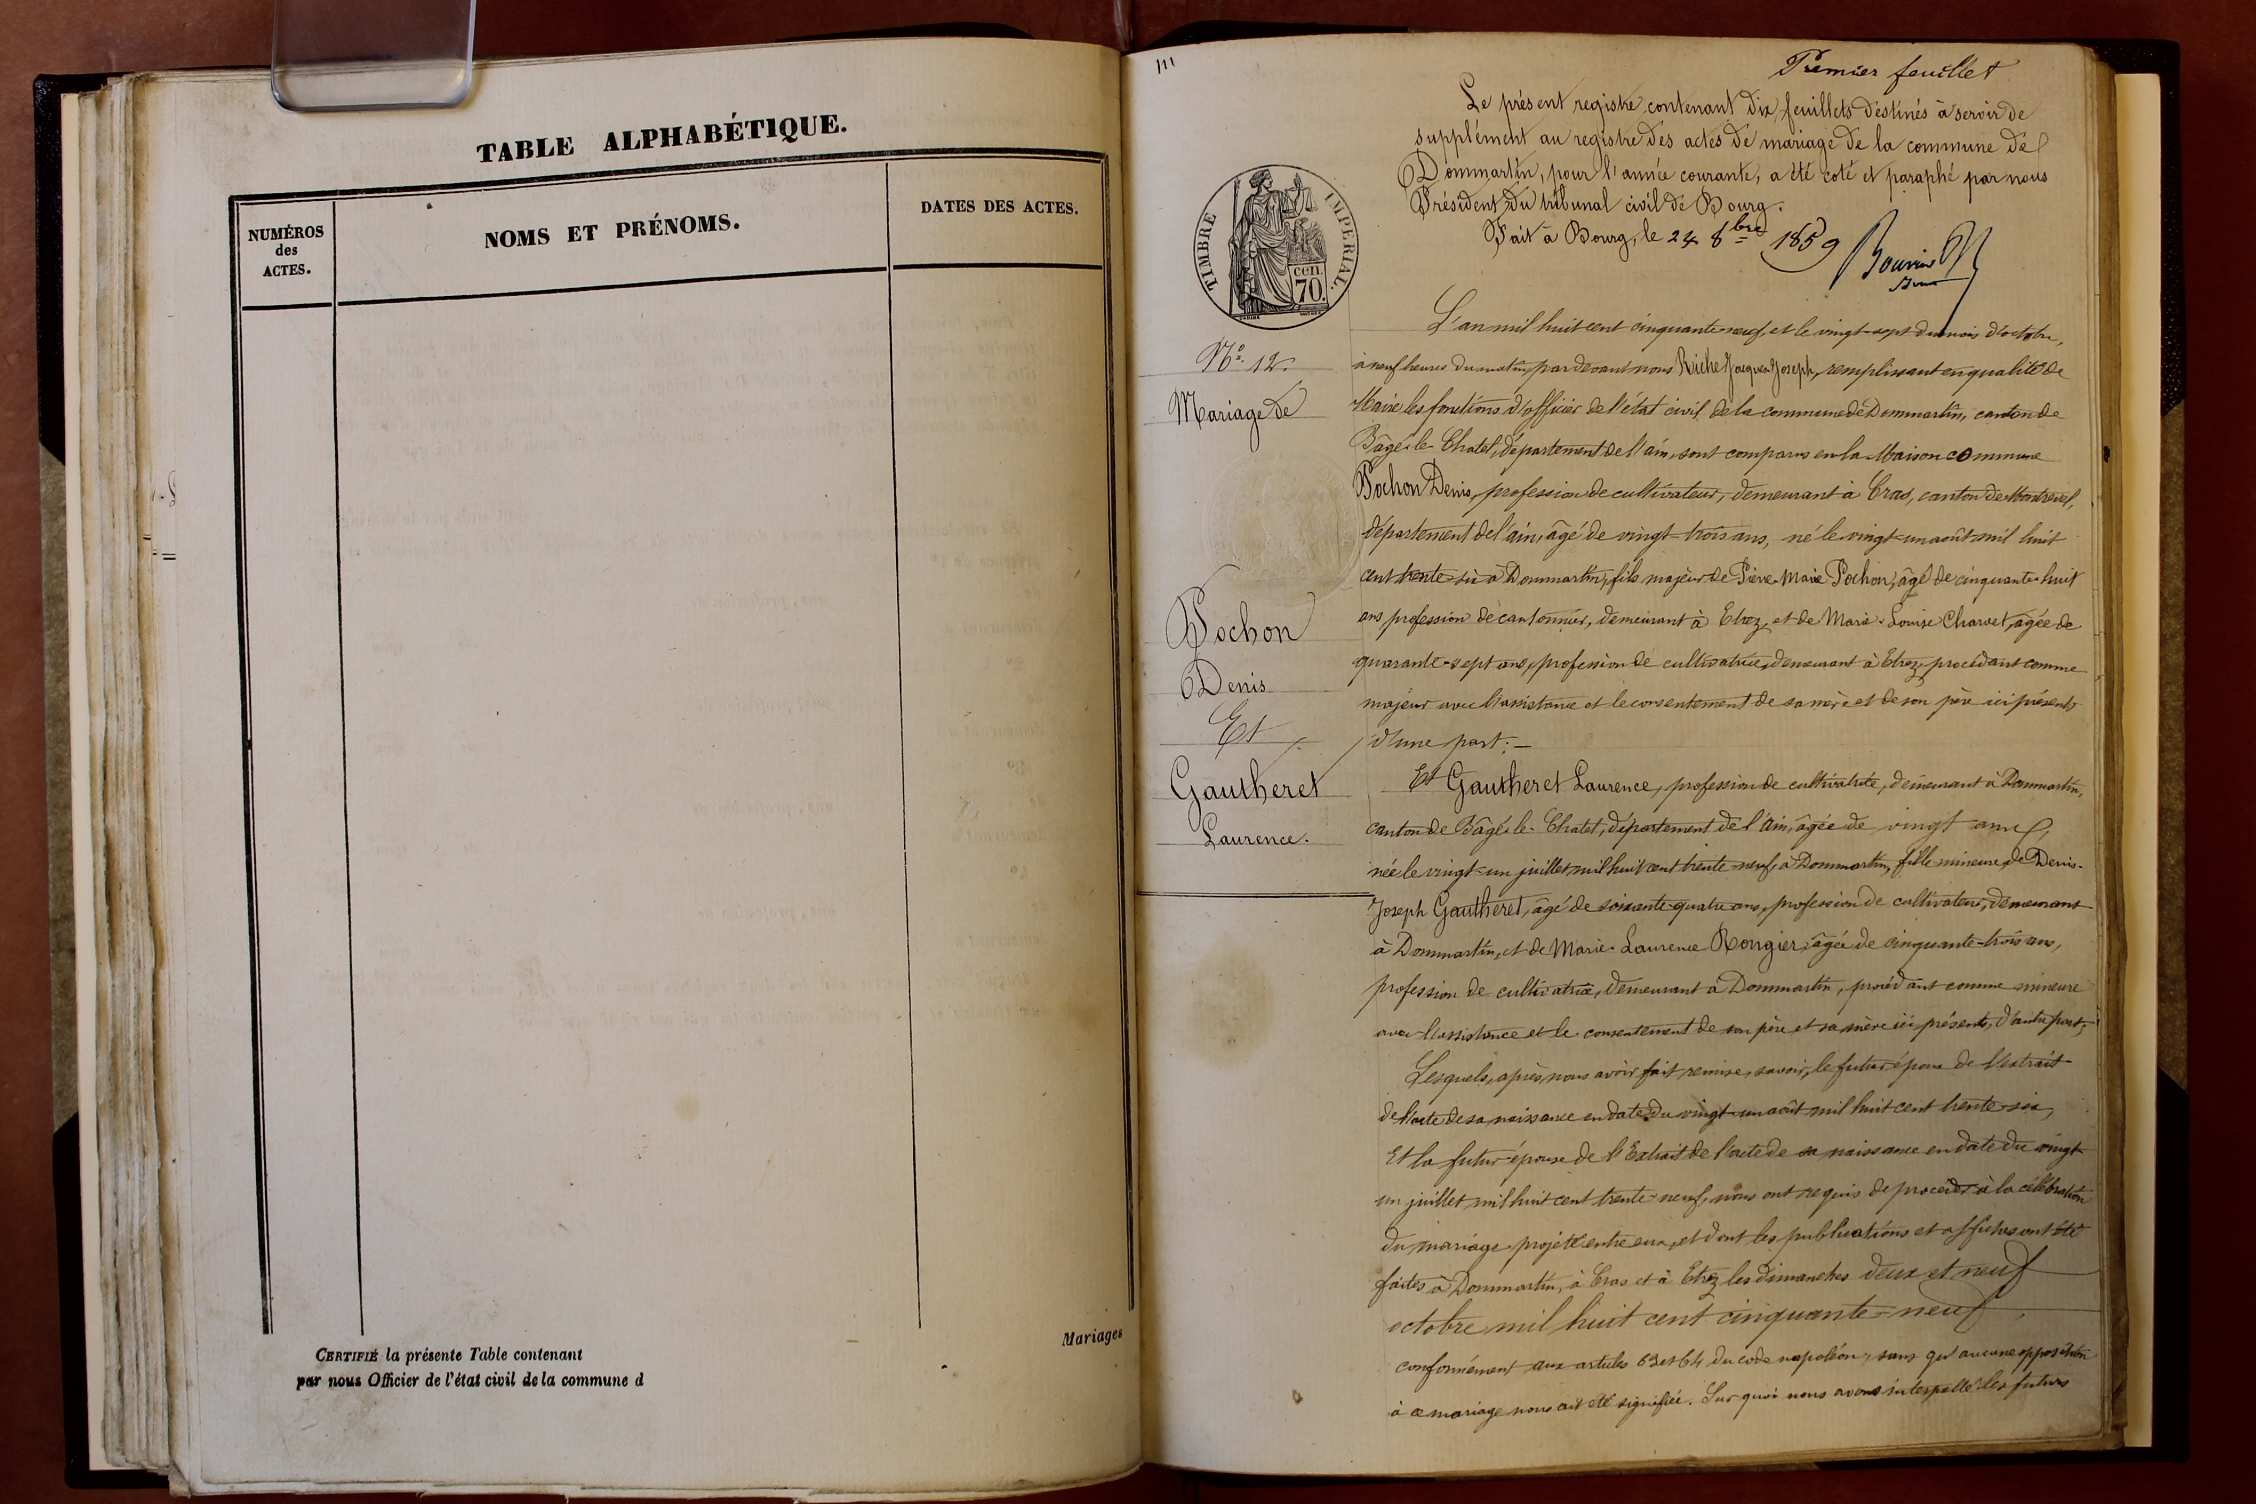 TABLE ALPHABÉTIQUE.
NUMÉROS
des
ACTES.
NOMS ET PRÉNOMS.
DATES DES ACTES.
CERTIFIÉ la présente Table contenant
par nous Officier de l'état civil de la commune d
Mariages
Premier feuillet
Le présent registre contenant dix feuillets destinés à servir de
supplément au registre des actes de mariage de la commune de
Dommartin, pour l'année courante, a été coté et paraphé par nous
Président du tribunal civil de Bourg.
Fait à Bourg, le 24 8bre 1859
TIMBRE IMPERIAL.
cen.
70.
No. 12.
Mariage de
Pochon
Denis
Et
Gautheret
Laurence.
L'an mil huit cent cinquante-neuf, et le vingt-sept du mois d'octobre,
à neuf heures du matin, par devant nous Riche Jacques Joseph, remplissant en qualité de
Maire les fonctions d'officier de l'état civil de la commune de Dommartin, canton de
Bâgé-le-Chatel, département de l'ain, sont comparus en la Maison commune
Pochon Denis, profession de cultivateur, demeurant à Cras, canton de Montrevel,
département de l'ain, âgé de vingt-trois ans, né le vingt-un août mil huit
cent trente-six à Dommartin, fils majeur de Pierre-Marie Pochon, âgé de cinquante-huit
ans profession de cantonnier, demeurant à Etrez, et de Marie-Louise Charvet, âgée de
quarante-sept ans, profession de cultivatrice, demeurant à Etrez, procédant comme
majeur avec l'assistance et le consentement de sa mère et de son père ici présents
d'une part;—
Et Gautheret Laurence, profession de cultivatrice, demeurant à Dommartin,
canton de Bâgé-le-Chatel, département de l'Ain, âgée de vingt ans,
née le vingt-un juillet mil huit cent trente-neuf, à Dommartin, fille mineure, de Denis-
Joseph Gautheret, âgé de soixante-quatre ans, profession de cultivateur, demeurant
à Dommartin, et de Marie-Laurence Rongier, âgée de cinquante-trois ans,
profession de cultivatrice, demeurant à Dommartin, procédant comme mineure
avec l'assistance et le consentement de son père et sa mère ici présents, d'autre part;
Lesquels, après nous avoir fait remise, savoir, le futur époux de l'extrait
de l'acte de sa naissance en date du vingt-un août mil huit cent trente-six,
Et la futur épouse de l'Extrait de l'acte de sa naissance en date du vingt-
un juillet mil huit cent trente-neuf, nous ont requis de procéder à la célébration
du mariage projeté entre eux, et dont les publications et affiches ont été
faites à Dommartin, à Cras et à Etrez les dimanches deux et neuf
octobre mil huit cent cinquante-neuf,
conformément aux articles 63 et 64 du code napoléon, sans qu'aucune opposition
à ce mariage nous ait été signifiée. Sur quoi nous avons interpellé les futurs